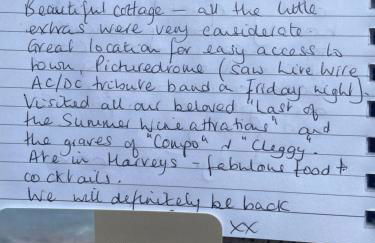 Beautiful cottage - all the little
extras were very considerate.
Great location for easy access to
town, Picturedrome (saw Live Wire
AC/DC tribute band on Friday night).
Visited all our beloved "Last of
the Summer Wine attrations" and
the graves of "Compo" & "Cleggy".
Ate in Harveys - fabulous food +
cocktails.
We will definitely be back
xx